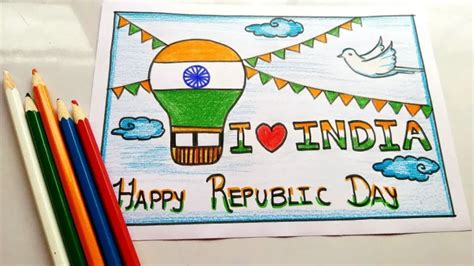 I ❤ INDIA
HAPPY REPUBLIC DAY